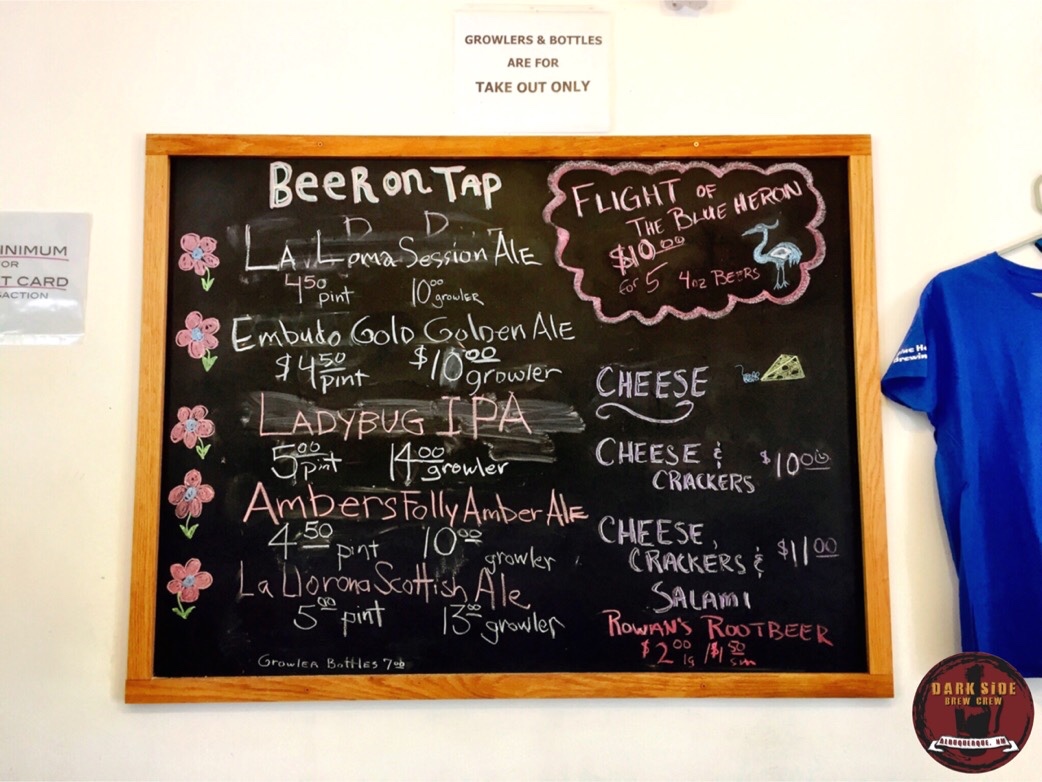 GROWLERS & BOTTLES
ARE FOR
TAKE OUT ONLY
INIMUM
OR
T CARD
SACTION
BEER ON TAP
LA Loma Session ALE
4 50 pint 10 00 growler
Embudo Gold Golden Ale
$4 50 pint $10 00 growler
LADYBUG IPA
5 00 pint 14 00 growler
Ambers Folly Amber ALE
4 50 pint 10 00 growler
La Llorona Scottish Ale
5 00 pint 13 00 growler
GROWLER BOTTLES 7 00
FLIGHT OF
THE BLUE HERON
$10 00
for 5 4oz BEERS
CHEESE
CHEESE &
CRACKERS $10 00
CHEESE,
CRACKERS & $11 00
SALAMI
ROWAN'S ROOTBEER
$2 00 lg / $1 50 sm
lue He
rewin
DARK SIDE
BREW CREW
ALBUQUERQUE, NM